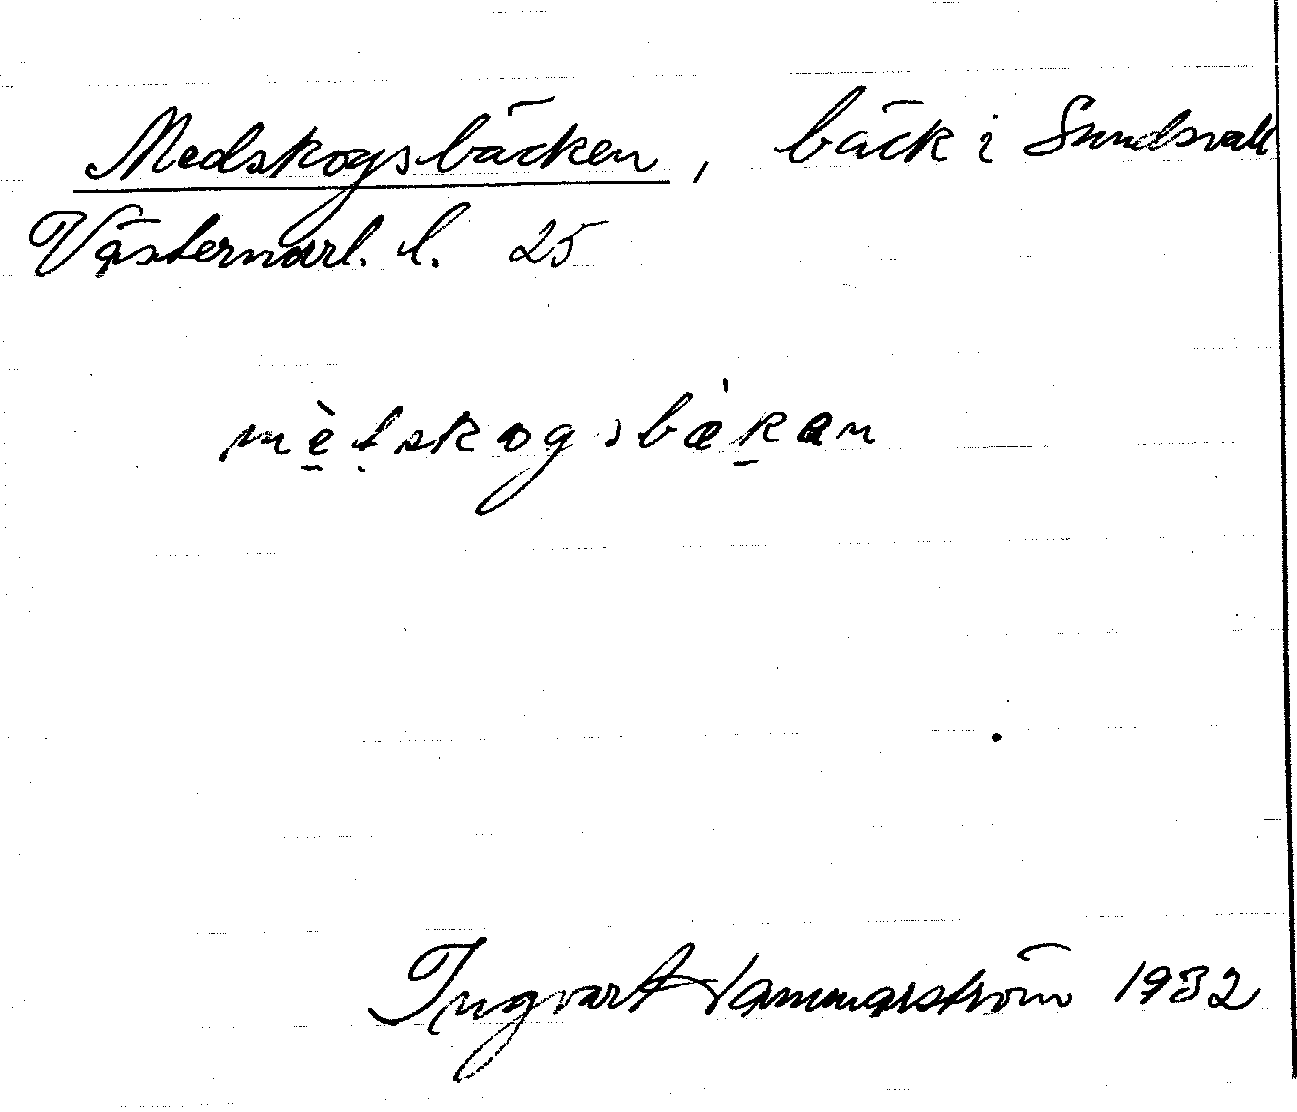 Medskogsbäcken, bäck i Sundsvall
Västernorl. l. 25
mètskogsbækan
Ingvart Hammarström 1932